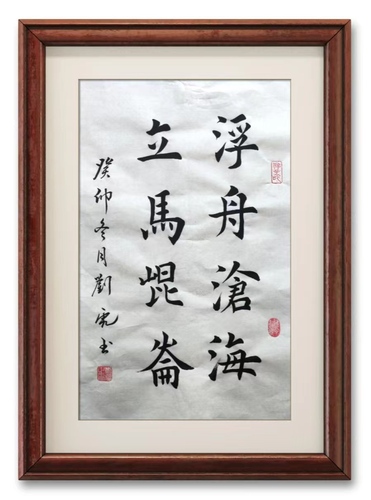 浮舟滄海
立馬崐崙
癸卯冬月劉书